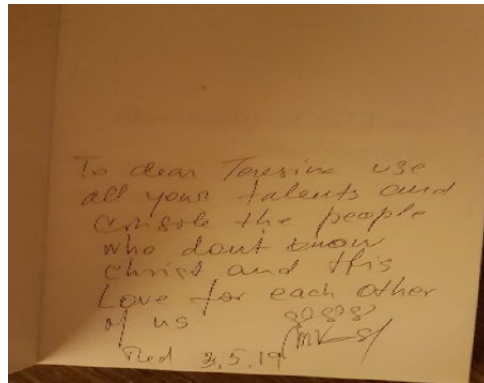 To dear Teresina use
all your talents and
console the people
who dont know
christ and this
Love for each other
of us
3.5.19